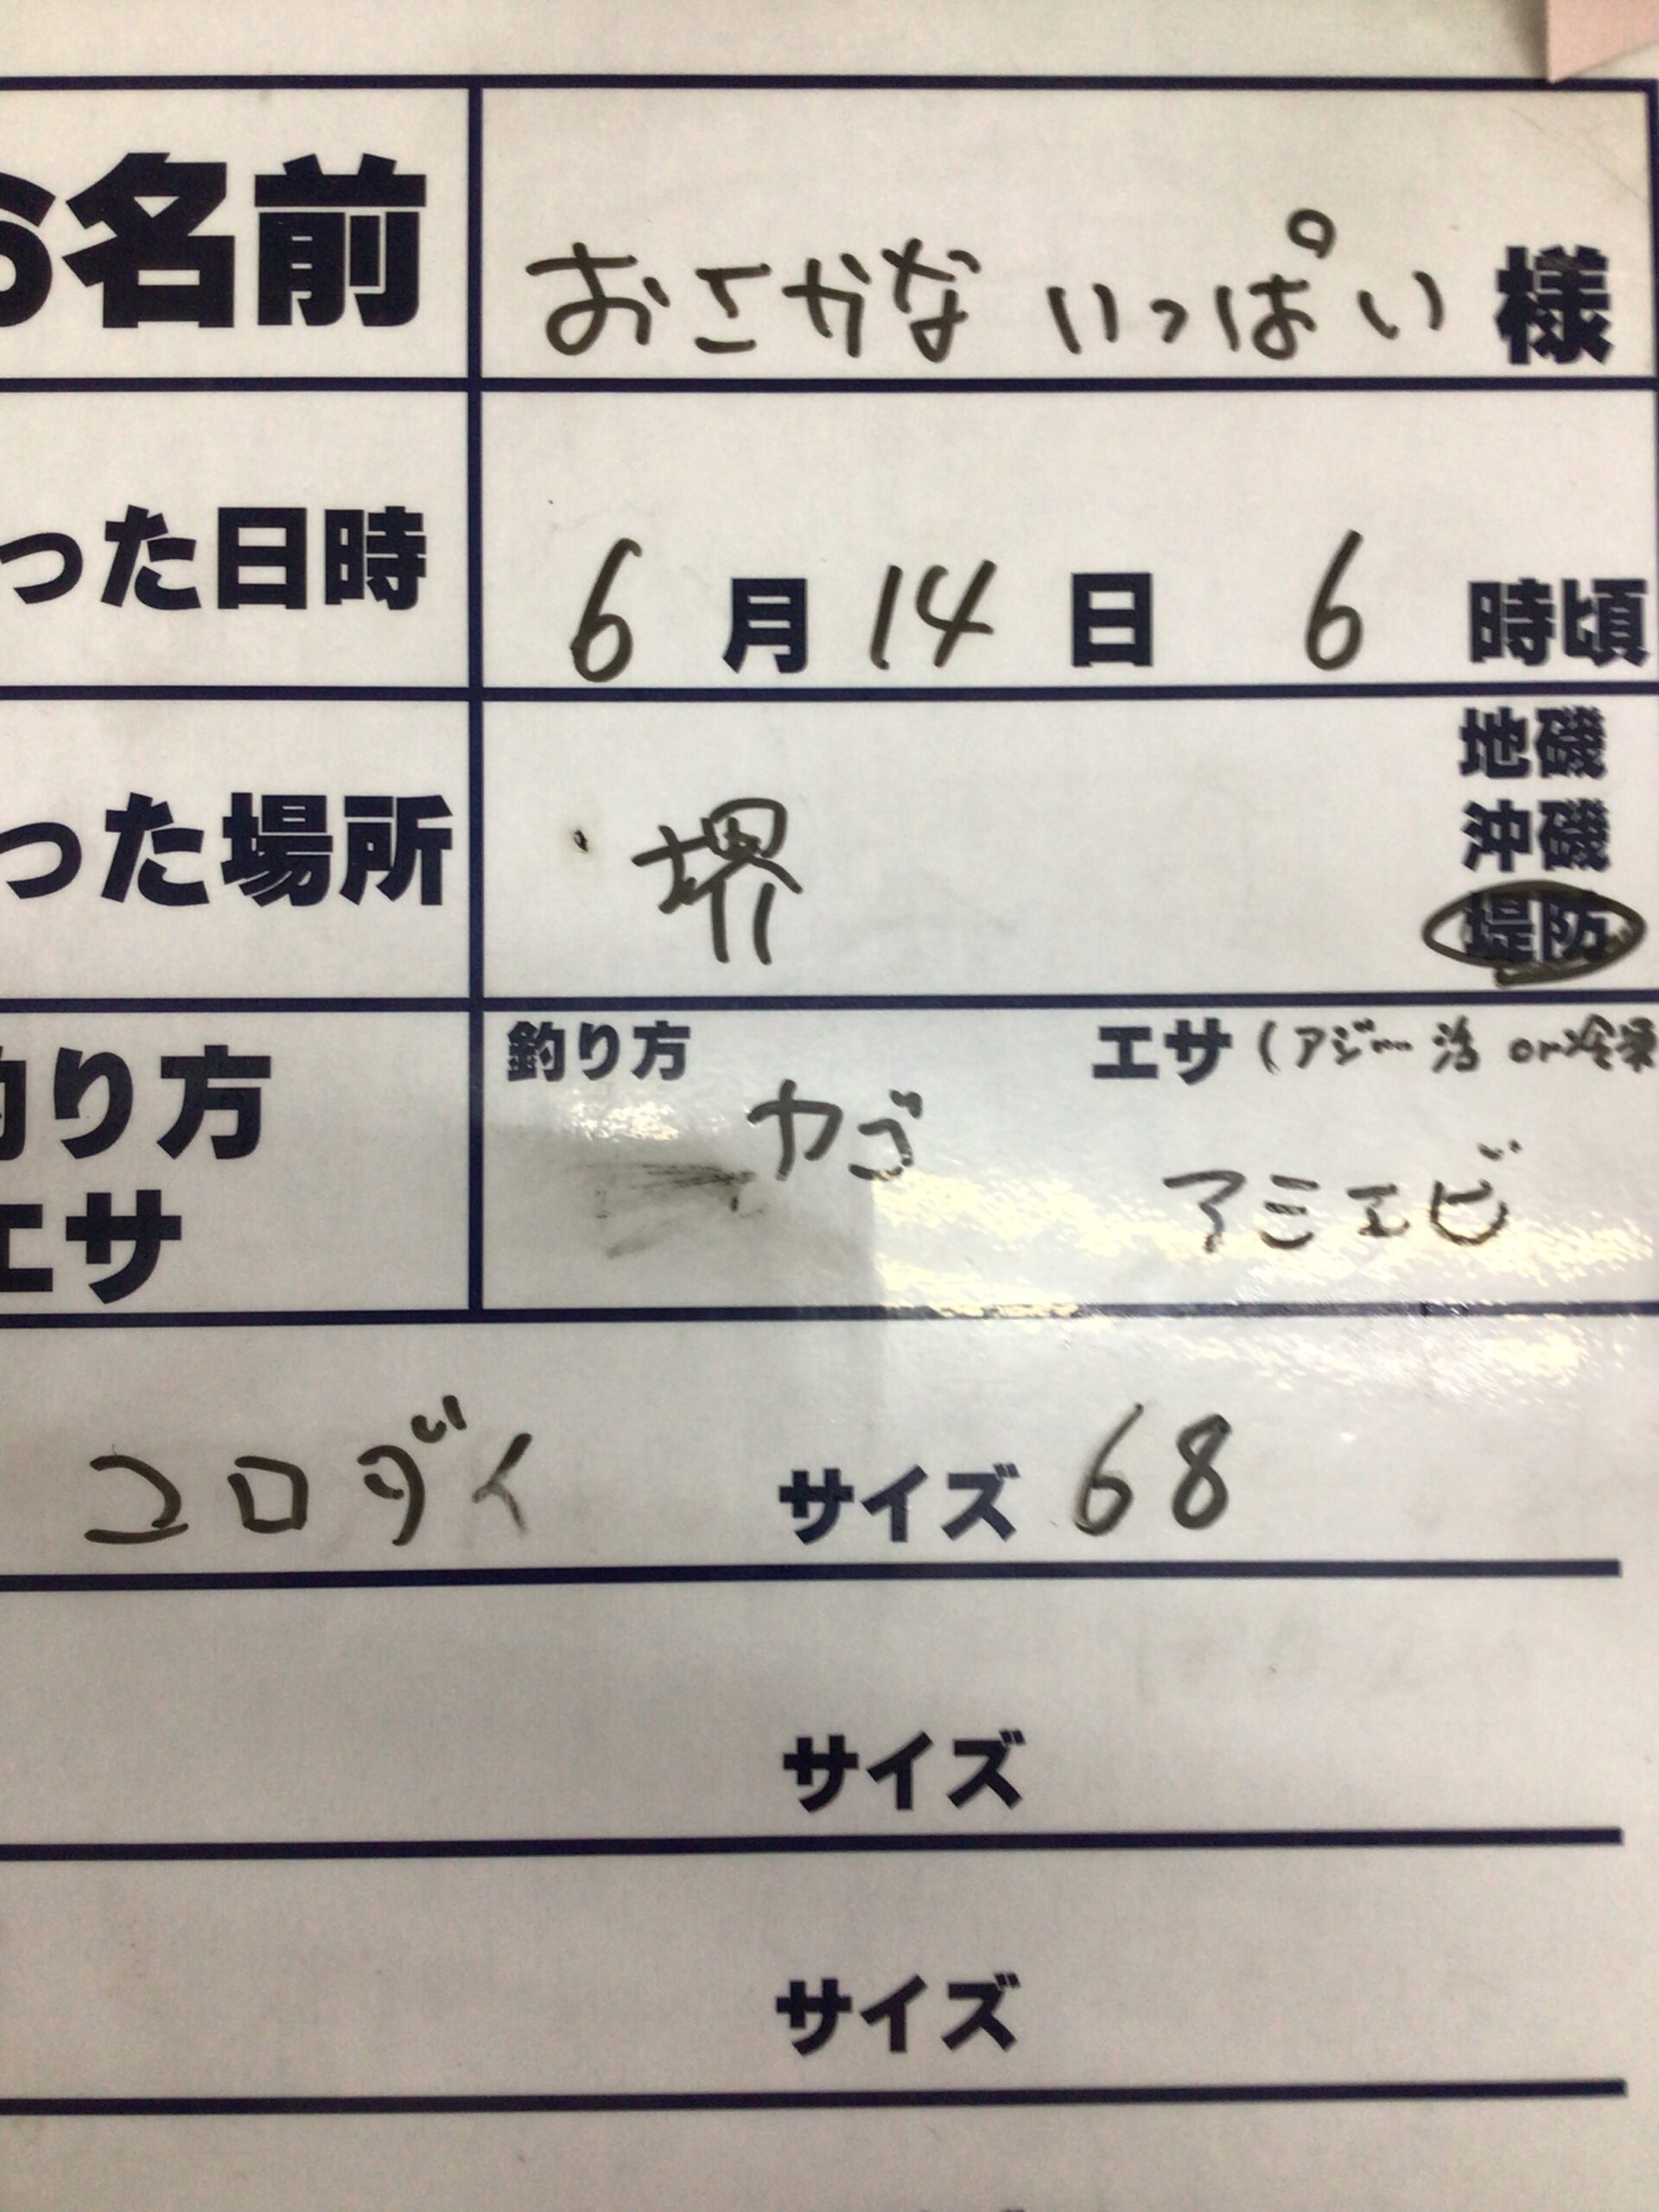 お名前 おさかな いっぱい 様
った日時 6月14日 6時頃
った場所 堺 地磯
沖磯
堤防
釣り方 釣り方 カゴ エサ(アジ… 活 or 冷凍
エサ アミエビ
コロダイ サイズ 68
サイズ
サイズ